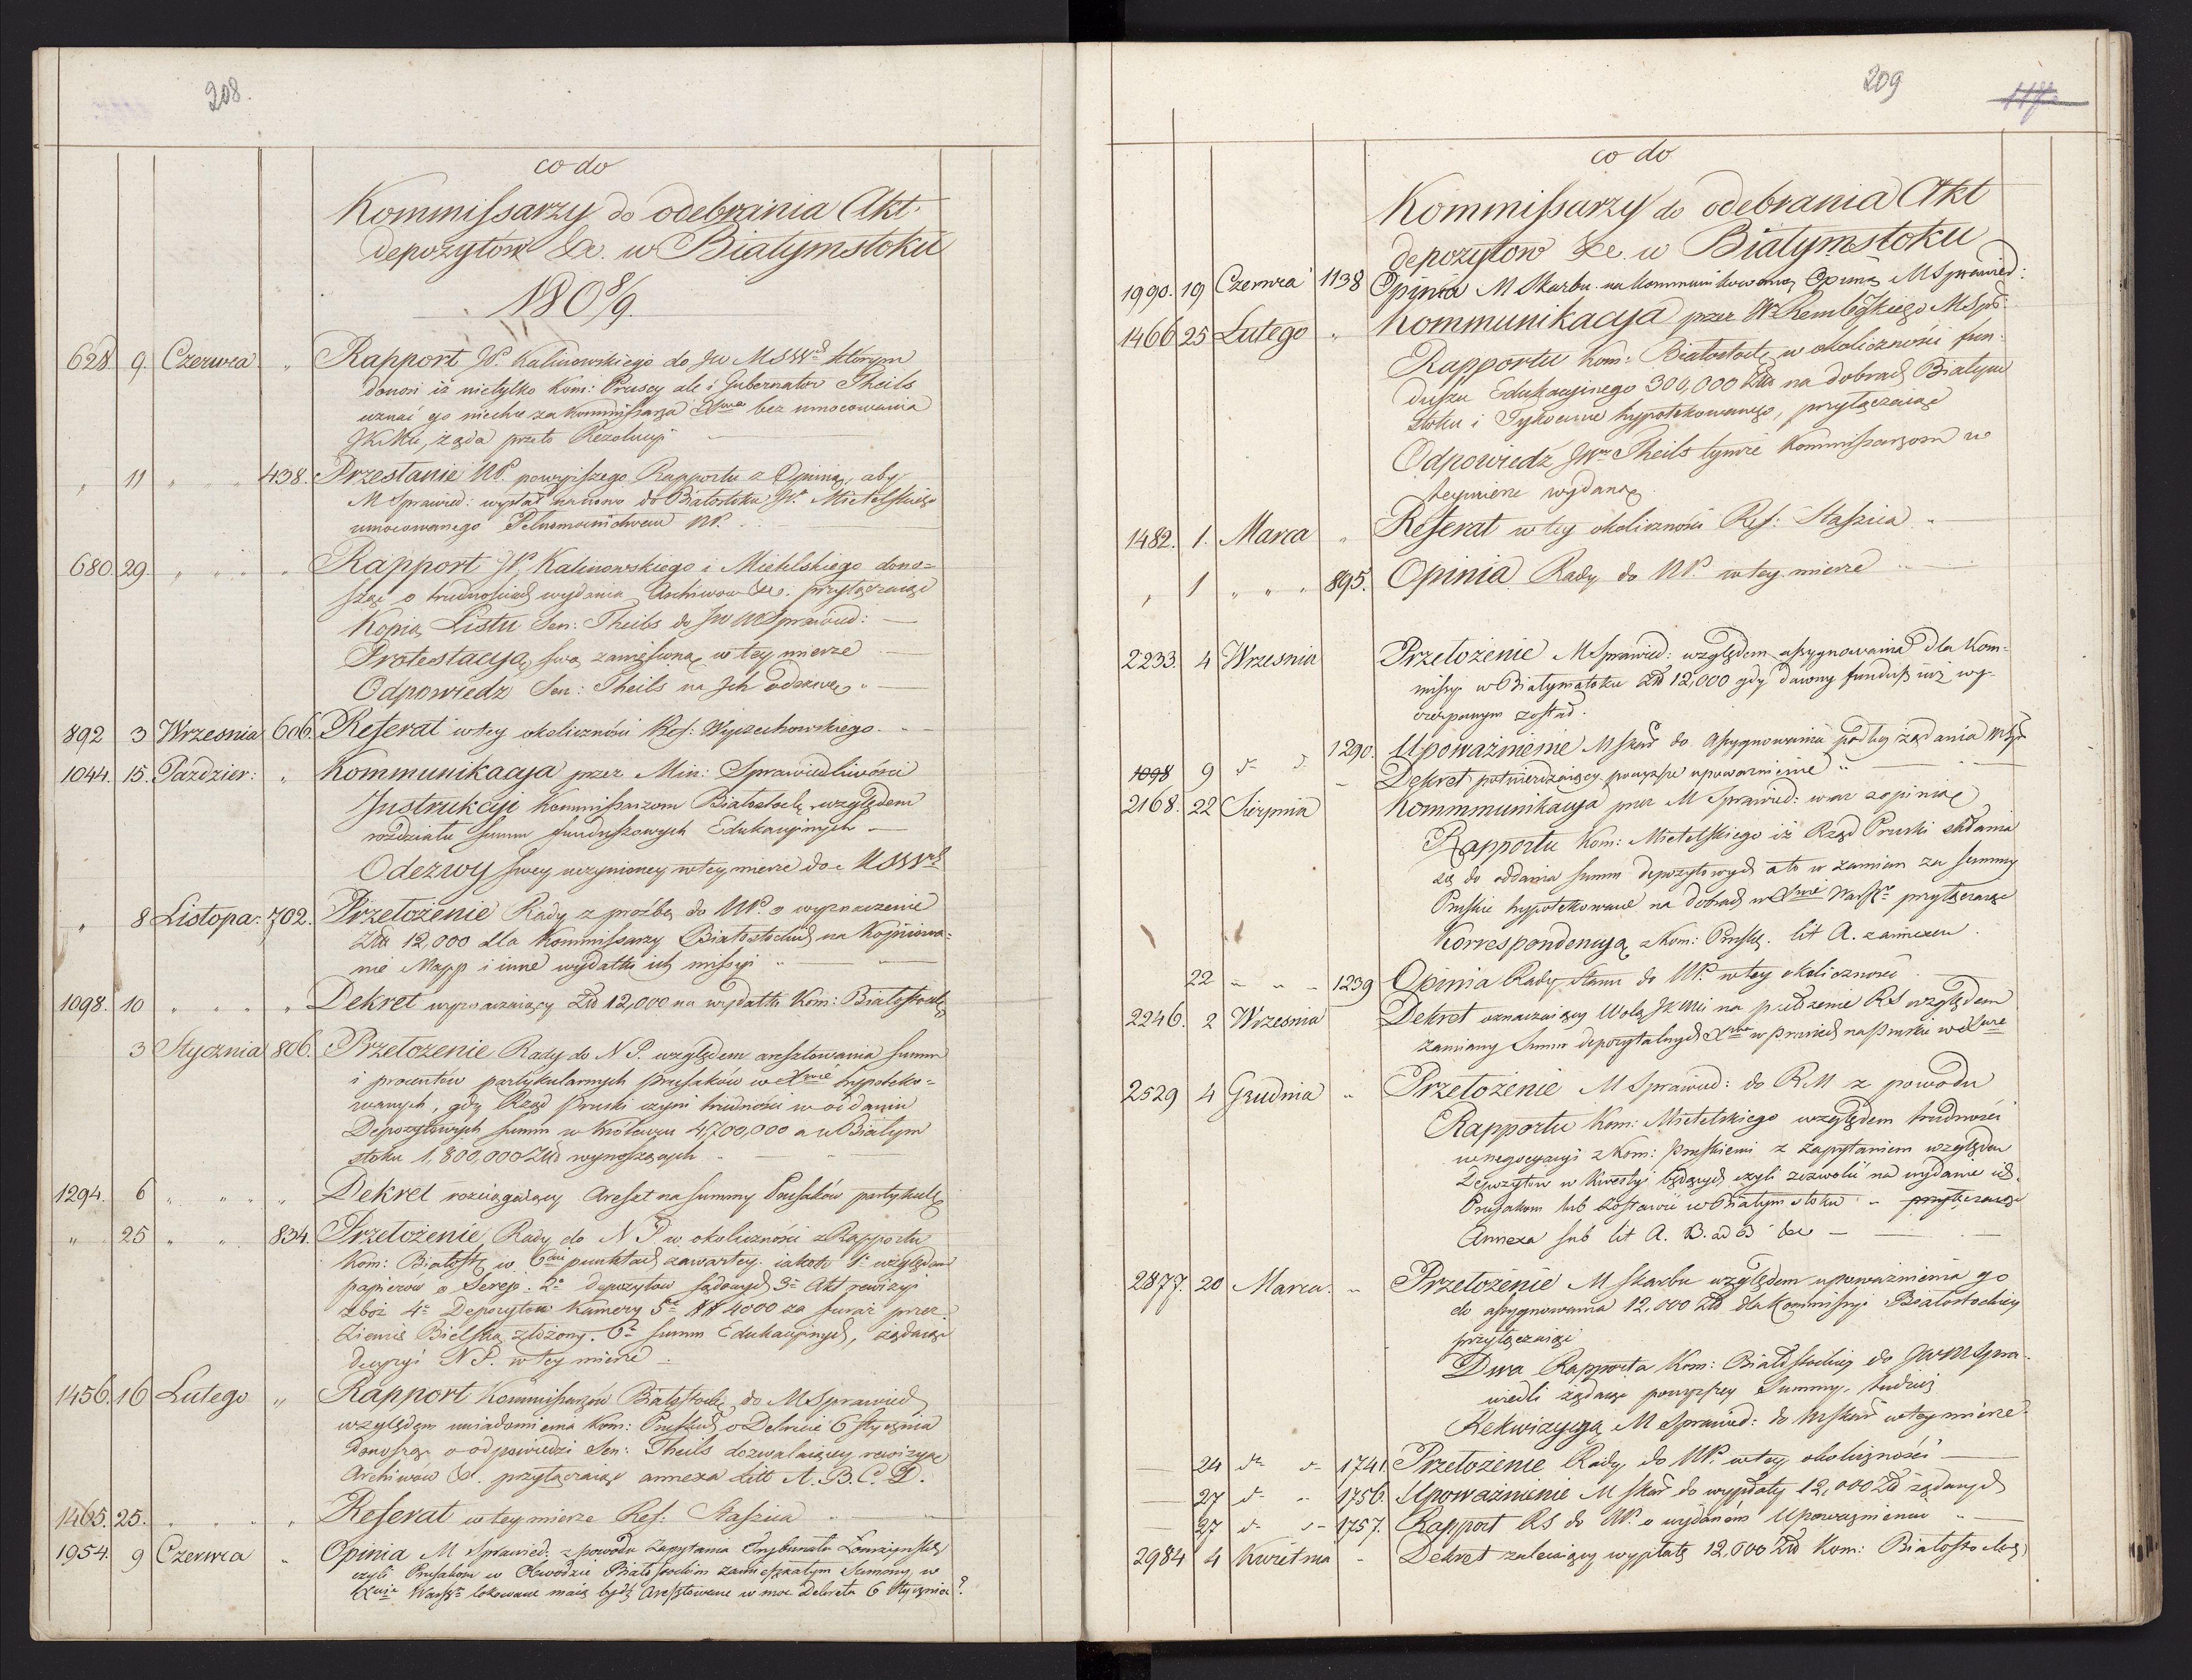 208.
co do
Kommissarzy do odebrania Akt
depozytów &c. w Białymstoku
180 8/9.
628. 9. Czerwca. „ Rapport JP. Kalinowskiego do JW MSWd którym
donosi iż nietylko Kom: Pruscy ale i Gubernator Theils
uznać go niechce za Kommissarza Xstwa bez umocowania
JKMci, żąda przeto Rezolucyi
„ 11 „ „ 438. Przesłanie NP. powyższego Rapportu z Opinią, aby
M Sprawied: wysłał na nowo do Białostoku JP. Mietelskiego
umocowanego Pełnomocnictwem NP.
680. 29. „ „ „ Rapport JP. Kalinowskiego i Mietelskiego dono=
sząc o trudnościach wydania Archiwow &c. przyłączaiąc
Kopią Listu Sen: Theils do JW MSprawied:
Protestacyją swą zaniesioną w tey mierze
Odpowiedz Sen: Theils na Ich odezwę „
892 3 Wrzesnia 606. Referat w tey okoliczności Ref: Woyciechowskiego.
1044. 15. Pazdzier: „ Kommunikacyja przez Min: Sprawiedliwości
Instrukcyi Kommissarzom Białostock. względem
rozdziału summ funduszowych Edukacyinych
Odezwy swey uczynioney w tey mierze do MSWd
„ 8 Listopa: 702. Przełożenie Rady z prośbą do NP. o wyznaczenie
Złt 12,000 dla Kommissarzy Białostockich na Kopiiowa=
nie Mapp i inne wydatki ich missyi
1098. 10 „ „ „ Dekret wyznaczaiący Złt 12,000 na wydatki Kom: Białostock.
3 Stycznia 806. Przełożenie Rady do N P. względem aresztowania summ
i procentów partykularnych prusaków w Xstwie hypoteko=
wanych, gdy Rząd pruski czyni trudności w oddaniu
Depozytowych summ w Królewcu 4,700,000 a w Białym
stoku 1,800,000 Złt wynoszących
1294. 6 „ „ „ Dekret rozciągaiący Areszt na summy Prusaków partykul.
„ 25 „ „ 834. Przełożenie Rady do N P w okoliczności z Rapportu
Kom: Białost. w 6ciu punktach zawartey iakoto 1° względem
papierow o Serejo: 2° depozytow sądowych 3° Akt rewizyi
zboż 4° Depozytow Kamery 5° ## 4000 za furaż przez
Ziemię Bielską złożony. 6° summ Edukacyinych, żądaiąc
decyzyi N P. w tey mierze
1456. 16 Lutego „ Rapport Kommissarzów Białostock. do MSprawied
względem uwiadomienia Kom: Pruskich o Dekrecie 6 stycznia
donosząc o odpowiedzi Sen: Theils dozwalaiącey rewizyą
Archiwów &c. przyłączaiąc annexa Litt A. B. C. D.
1465. 25. „ „ „ Referat w tey mierze Ref: Staszica
1954. 9 Czerwca „ Opinia M Sprawied: z powodu Zapytania Trybunału Łomżyńsk.
czyli Prusakom w Obwodzie Białostockim zamieszkałym Summy w
Xtwie Warsz. lokowane maią bydź Aresztowane w moc Dekretu 6 Stycznia?
209
117.
co do
Kommissarzy do odebrania Akt
depozytow &c. w Białymstoku
1990. 19 Czerwca 1138 Opinia M Skarbu na kommunikowaną Opinią MSprawied:
1466 25 Lutego „ Kommunikacyja przez Rembowskiego MSpr.
Rapportu Kom: Białostock. w okoliczności fun-
duszu Edukacyinego 300,000 Złt na dobrach Białym
stoku i Tykocinie hypotekowanego, przyłączaiąc
Odpowiedź JWo Theils tymże Kommissarzom w
tey mierze wydaną.
1482. 1. Marca „ Referat w tey okoliczności Ref: Staszica
„ 1 „ „ „ 895. Opinia Rady do NP. w tey mierze
2233. 4 Wrzesnia Przełożenie MSprawied: względem assygnowania dla Kom-
missyi w Białymstoku Złt 12,000 gdy dawny fundusz iuż wy-
czerpanym został.
1290. Upoważnienie MSkar do Assygnowania podług żądania MSpr
1098 9 d° d° - Dekret potwierdzaiący powyższe upoważnienie „
2168. 22 Sierpnia Kommmunikacyja przez M Sprawied: wraz z opinią
Rapportu Kom: Mietelskiego iż Rząd Pruski skłania
się do oddania summ depozytowych ato w zamian za summy
Pruskie hypotekowane na dobrach w Xtwie Warsz. przyłączaiąc
Korrespondencyą z Kom: Prusk. lit A. zamiaru.
22 - - - 1239 Opinia Rady Stanu do NP. w tey okoliczności
2246. 2 Wrzesnia Dekret oznaczaiący Wolą JKMci na przełożenie RS względem
zamiany Summ depozytalnych Xtwa w prusiech na pruskie w Xtwie
2529 4 Grudnia „ Przełożenie M Sprawied: do RM z powodu
Rapportu Kom: Mietelskiego względem trudności
w negocyacyi z Kom: pruskiemi z zapytaniem względem
Depozytow w kwestyi będących czyli zezwolić na wydanie ich
Prusakom lub zostawić w Białymstoku „ przyłączaiąc
Annexa sub lit A. B. ad B &c
2877. 20 Marca. „ Przełożenie M Skarbu względem upoważnienia go
do assygnowania 12,000 Złt dla Kommissyi Białostockiey
przyłączaiąc
Dwa Rapporta Kom: Białostockiey do JWMSpra-
wiedli żądaiąc powyższey Summy, tudzież
Rekwizycyą M Sprawied: do MSkar w tey mierze
24 d° d° 1741 Przełożenie Rady do NP. w tey okoliczności
27 d° „ 1756. Upoważnienie M Skar do wypłaty 12,000 Złt żądanych
27 d° d° 1757. Rapport RS do NP. o wydaném Upoważnieniu „
2984 4 Kwietnia - Dekret zalecaiący wypłatę 12,000 Złt Kom: Białostockiey